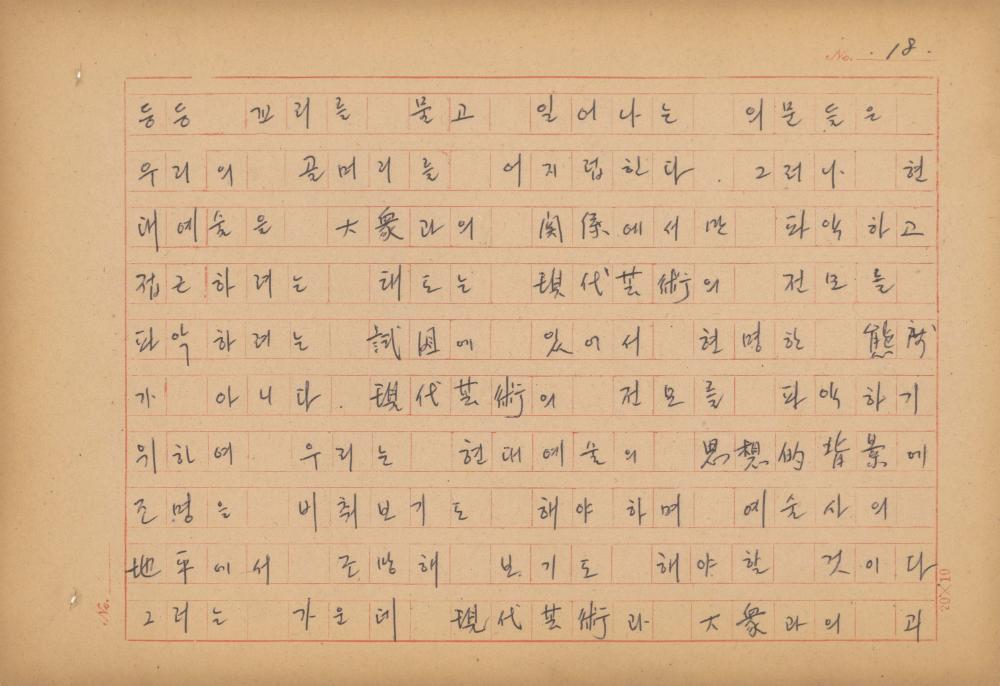 No. 18.
등등 꼬리를 물고 일어나는 의문들은
우리의 골머리를 어지럽힌다. 그러나 현
대예술을 大衆과의 関係에서만 파악하고
접근하려는 태도는 現代芸術의 전모를
파악하려는 試図에 있어서 현명한 態度
가 아니다. 現代芸術의 전모를 파악하기
위하여 우리는 현대예술의 思想的 背景에
조명을 비춰보기도 해야하며 예술사의
地平에서 조망해 보기도 해야할 것이다
그러는 가운데 現代芸術과 大衆과의 괴
No.
20×10